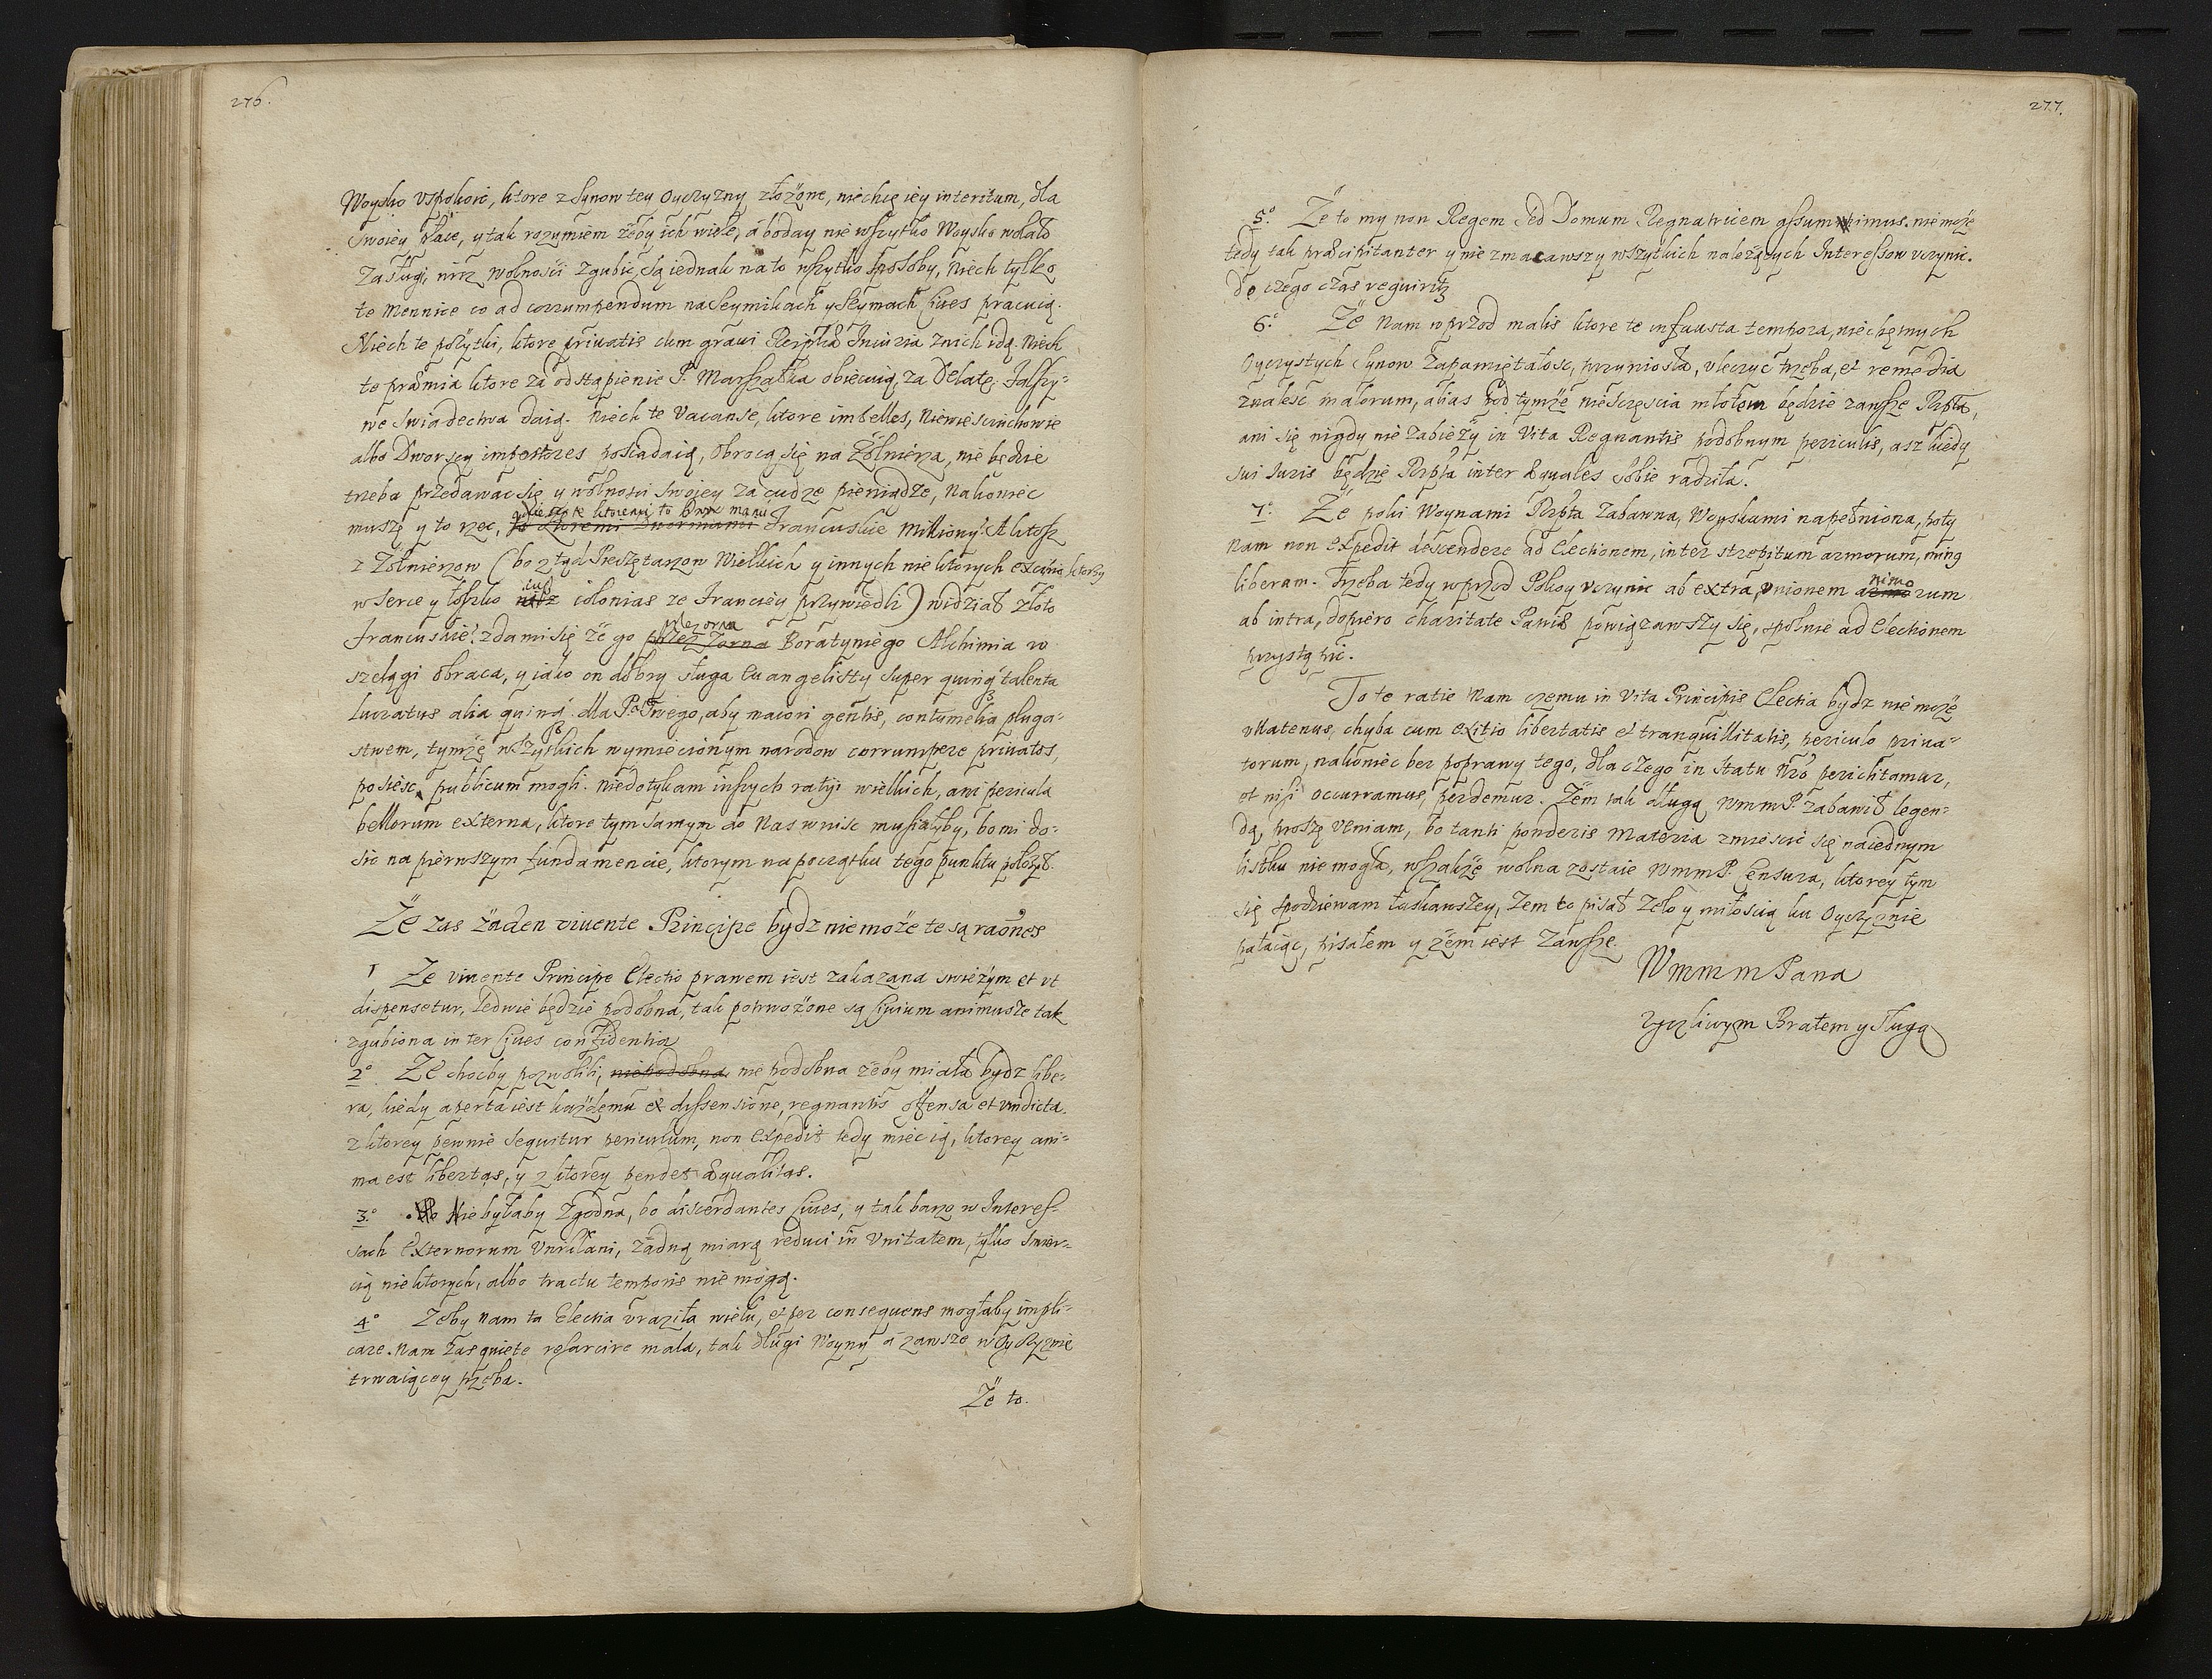 276.
Woysko vspokoić, ktore z Synow tey Oyczyzny złożone, niechcę iey interitum, dla
swoiey płace, y tak rozumiem żeby ich wiele, a boday nie wszytko Woysko wolało
Zasługi, niz wolności zgubić, Są iednak na to wszytko sposoby, Niech tylko
te Mennice co ad corrumpendum na Seymikach y Seymach Cives pracuią.
Niech te pożytki, ktore privatis cum gravi Reiptæ Iniuria z nich idą. Niech
te præmia ktore za odstąpienie P. Marszałka obiecuią, za Delatę, Falszy-
we swiadectwa daią. Niech te Vacanse, ktore imbelles, Niewieściuchowie
albo Dworscy impostores posiadaią, Obrocą się na Żołnierza, nie będzie
trzeba przedawać się y wolności swoiey za cudze pieniądze, Nakoniec
muszę y to rzec, gdzie są te ktoremi to brzemi manu Francuskie Milliony? A ktosz
z Żołnierzow (bo ztąd Pieczętarzow Wielkich y innych niektorych excipio ktorzy
w serce y łoszko cuius colonias ze Franciey przywiedli) widział złoto
Francuskie? zda mi się że go przez orna Boratyniego Alchimia w
szelągi obraca, y iako on dobry sługa Euangelisty super quinq talenta
lucratus alia quinq. dla Pa Swego, aby maiori gentis, contumelia pluga-
stwem, tymże wszystkich wymiecionym narodow corrumpere privatos,
posiesc publicum mogli. Niedotykam inszych ratyi wielkich, ani pericula
bellorum externa, ktore tym samym do Nas wniść musiałyby, bo mi do-
sic na pierwszym fundamencie, ktorym na początku tego punktu położył.
Że zas żaden vivente Principe bydz nie może te są raōnes
1 Ze vivente Principe Electio prawem iest zakazana swieżym et vt
dispensetur, ledwie będzie podobna, tak potrwożone są Civium animusze tak
zgubiona inter Cives confidentia
2° Że choćby pozwolili, niepodobna nie podobna żeby miała bydz libe-
ra, kiedy aperta iest każdemu ex dissensione, regnantis offensa et vindicta.
z ktorey pewnie sequitur periculum, non expedit tedy mieć ią, ktorey ani-
ma est libertas, y z ktorey pendet æqualitas.
3° Nie byłaby Zgodna, bo discordantes Cives, y tak barzo w Interes-
sach Externorum vwikłani, żadną miarą reduci in Vnitatem, tylko smier-
cią niektorych, albo tractu temporis nie mogą.
4° Zeby nam ta Electia vraziła wielu, et per consequens mogłaby impli-
care. Nam zas quiete resarcire mala, tak długi Woyny a zawsze w Oyczyznie
trwaiącey trzeba.
Że to.
277.
5° Że to my non Regem Sed Domum Regnatricem assumpsimus. nie może
tedy tak præcipitanter y nie zmacawszy wszytkich należących Interessow vczynić.
Do czego czas requiritur
6° Że Nam wprzod malis ktore te infausta tempora, niechętnych
Oyczystych Synow Zapamiętałosc, przyniosła, vleczyć trzeba, et remedia
znaleść malorum, alias pod tymże nieszczęścia młotem będzie zawsze Rzpta,
ani się nigdy nie zabieży in Vita Regnantis podobnym periculis, asz kiedy
sui Iuris będzie Rzpta inter æquales sobie radziła.
7° Że poki Woynami Rzpta Zabawna, Woyskami napełniona, poty
Nam non expedit descendere ad Electionem, inter strepitum armorum, minq
liberam. Trzeba tedy wprzod Pokoy vczynic ab extra, vnionem animorum
ab intra, dopiero charitate Panis powiązawszy się, społnie ad Electionem
przystąpić.
To te ratie Nam czemu in Vita Principis Electia bydz nie może
vllatenus, chyba cum exitio libertatis et tranquillitatis, periculo priva-
torum, nakoniec bez poprawy tego, dla czego in statu Nro periclitamur,
et nisi occurramus, perdemur. Żem tak długą WmmP. zabawił legen-
dą, proszę veniam, bo tanti ponderis Materia zmieścić się naiednym
listku nie mogła, wszakże wolna zostaie WmmP. Censura, ktorey tym
się spodziewam łaskawszey, Zem to pisał Zelo y miłością ku Oyczyznie
pałaiąc, pisałem y żem iest zawsze.
Wmmm Pana
zyczliwym Bratem y sługą